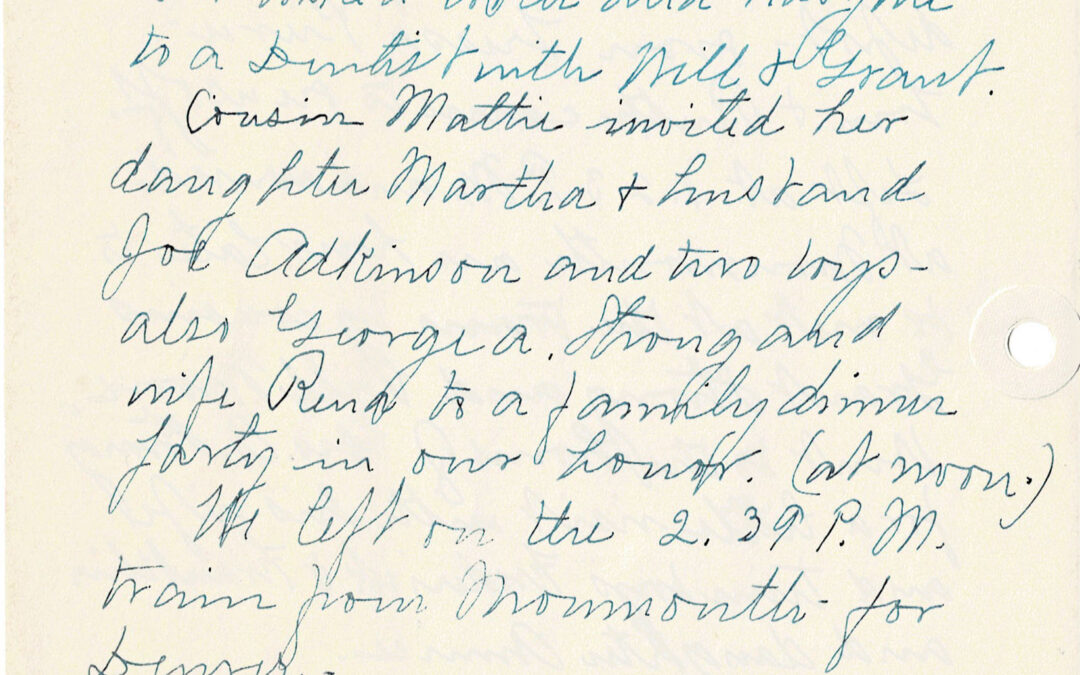 to a Dentist with Will & Grant.
Cousin Mattie invited her
daughter Martha & husband
Joe Adkinson and two boys-
also George A. Strong and
wife Rena to a family dinner
party in our honor. (at noon.)
We left on the 2.39 P.M.
train from Monmouth- for
Denver.-